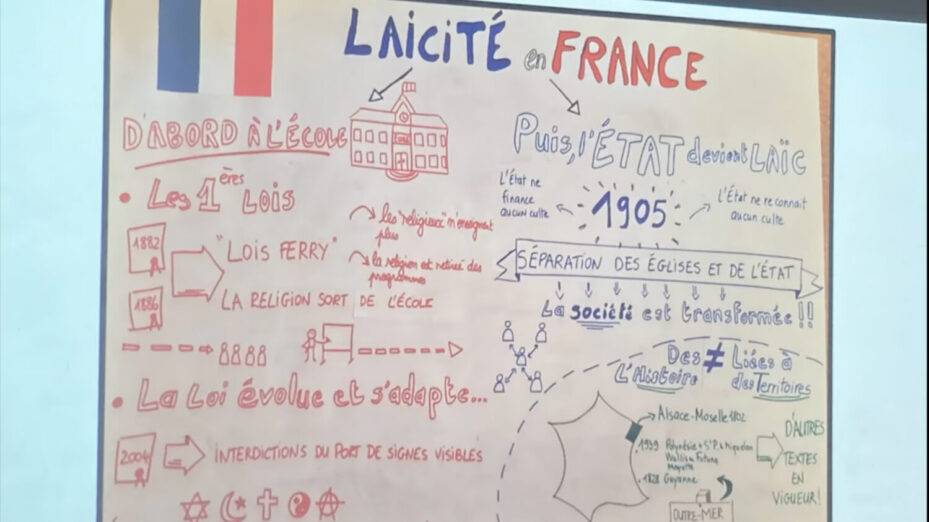 LAiCiTÉ en FRANCE
D'ABORD À L'ÉCOLE
• Les 1ères LOIS
1882
1886
"LOIS FERRY"
LA RELIGION SORT DE L'ÉCOLE
les "religieux" n'enseignent
plus
la religion est retirée des
programmes
• La Loi évolue et s'adapte...
2004
INTERDICTIONS DU PORT DE SIGNES VISIBLES
Puis, l'ÉTAT devient LAÏC
L'État ne
finance
aucun culte
1905
L'État ne reconnait
aucun culte
SÉPARATION DES ÉGLISES ET DE L'ÉTAT
La société est transformée !!
Des ≠ Liées à
L'Histoire
des Territoires
Alsace-Moselle 1802
• 1939 Polynésie + St P. & Miquelon
Wallis & Futuna
Mayotte
• 1828 Guyanne
OUTRE-MER
D'AUTRES
TEXTES
EN
VIGUEUR !